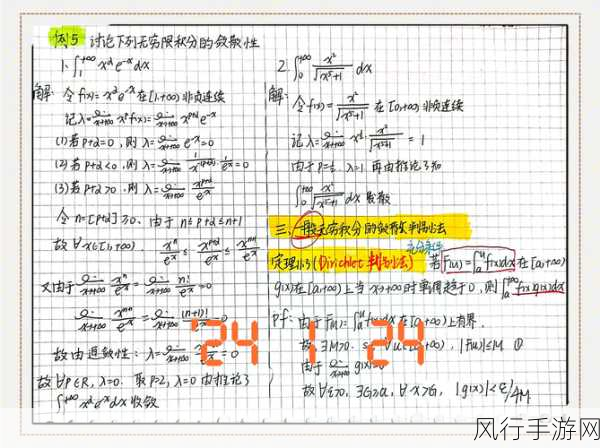 例5 讨论下列无穷限积分的敛散性
1. ∫₁^{+∞} x^α e^{-x} dx
解: 令 f(x)=x^α e^{-x} 在[1,+∞)非负连续
记 λ=lim_{x→+∞} x^p f(x)=lim_{x→+∞} x^{p+α} e^{-x}
(1) 若 p+α=0, 则 λ=lim_{x→+∞} e^{-x}=0
(2) 若 p+α<0, 则 λ=lim_{x→+∞} 1/x^{-(p+α)} · 1/e^x=0
(3) 若 p+α>0, 则 λ=lim_{x→+∞} x^{p+α}/e^x
令 n=[p+α]≥0. 由于 n≤p+α≤n+1
故 ∀x∈[1,+∞). x^n/e^x ≤ x^{p+α}/e^x ≤ x^{n+1}/e^x
又由于 lim_{x→+∞} x^n/e^x = lim_{x→+∞} n!/e^x =0
lim_{x→+∞} x^{n+1}/e^x = lim_{x→+∞} (n+1)!/e^x =0
故由迫敛性: λ=lim_{x→+∞} =0
故 ∀p∈R, λ=0. 取p=2, λ=0 由推论3
∫₁^{+∞} x^α e^{-x} dx 收敛
2. ∫₀^{+∞} x²/√(x⁵+1) dx
解: 令 f(x)=x²/√(x⁵+1) 在[0,+∞)非负连续
记 λ=lim_{x→+∞} x^{1/2} · x²/√(x⁵+1) = 1
由于 p=1/2, λ=1 再由推论3知
∫₀^{+∞} x²/√(x⁵+1) dx 发散
三、一般无穷积分的敛散判别法
充分条件
定理11.3 (Dirichlet 判别法) 若 F(u)=∫ₐ^u f(x)dx 在[a,+∞)
g(x)在[a,+∞)上当x→+∞时单调趋于0, 则∫ₐ^{+∞} f(x)g(x)dx
pf: 由于 F(u)=∫ₐ^u f(x)dx 在[a,+∞)上有界.
故 ∃M>0. ∀u∈[a,+∞), |F(u)|≤M ①
由于 lim_{x→+∞} g(x)=0
故 ∀ε>0, ∃G≥a, ∀x>G, |g(x)|<ε/4M
'24 1 24
风行手游网